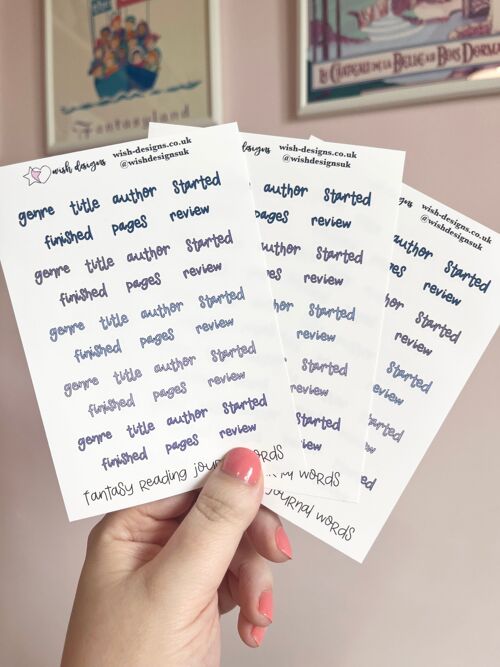 Fantasyland
Le Chateau de la Belle au Bois Dorma
wish designs wish-designs.co.uk
@wishdesignsuk
genre title author started
finished pages review
genre title author started
finished pages review
genre title author started
finished pages review
genre title author started
finished pages review
genre title author started
finished pages review
Fantasy Reading Jour words
wish-designs.co.uk
@wishdesignsuk
author started
pages review
author started
review
started
review
started
review
started
words
wish-designs.co.uk
@wishdesignsuk
author started
review
started
review
started
review
started
Journal words